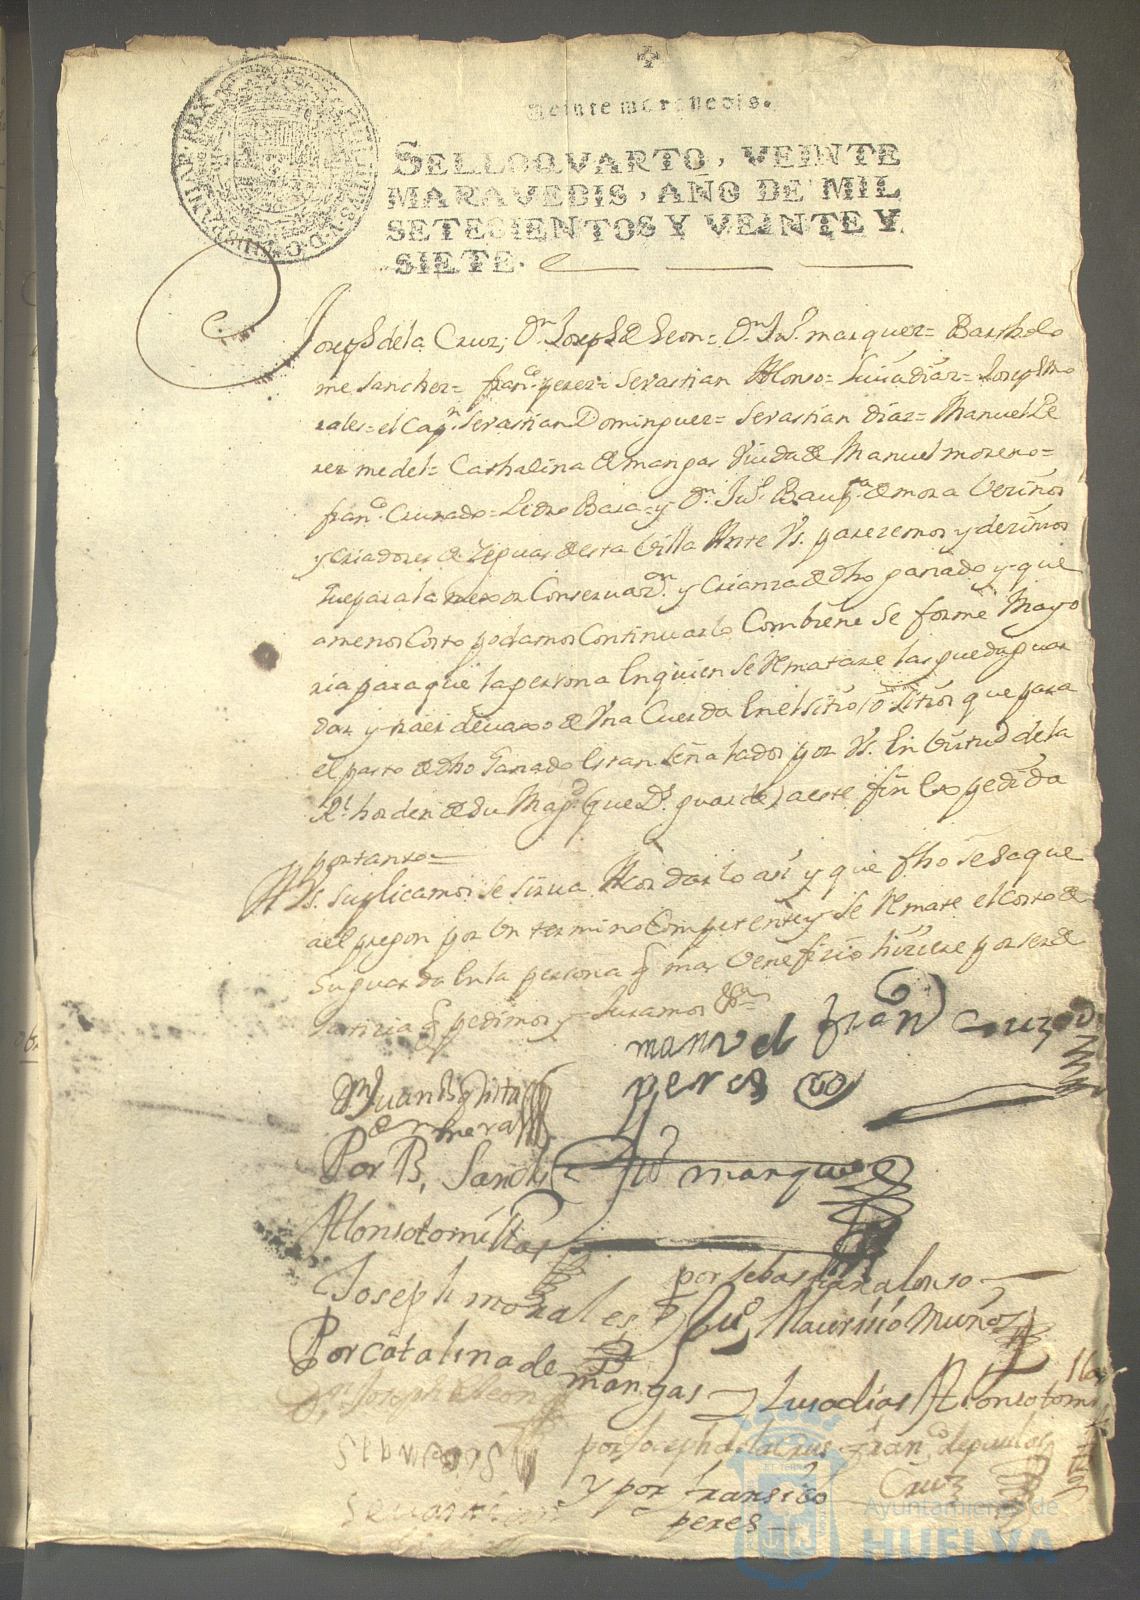 Veinte maravedis.
SELLO QVARTO, VEINTE
MARAVEDIS, AÑO DE MIL
SETECIENTOS Y VEINTE Y
SIETE.
Joseph de la Cruz; Dn Joseph de Leon = Dn Ju.o marquez = Bartholo
me sanchez = fran.co perez = sevastian Alonso = Luis diaz = Joseph mo
rales = el Cap.n Sevastian Dominguez = Sevastian diaz = Manuel Pe
rez medel = Cathalina de mangas Viuda de Manuel moreno =
fran.co Cruzado = Pedro Bara = y Dn Ju.o Baup.ta de mora Vezinos
y Criadores de Yeguas de esta Villa Ante Vs. parezemos y dezimos
que para la mexor Conservaz.on y Crianza de dho ganado y que
a menos Costo podamos Continuarlo Combiene se forme Mayo
ria para que la persona En quien se Rematare las pueda guar
dar y traer devaxo de Una Cuerda En el sitio o sitios que para
el pasto de dho Ganado Estan señalados por Vs. En Virtud de la
R.l horden de Su Mag.d (que Ds. guarde) a este fin Expedida
por tanto =
A Vs. suplicamos se sirva Acordarlo asi y que fho se saque
a el pregon por Un termino Competente y se Remate el Costo de
su guarda En la persona q mas Venefizio hiziere por ser de
Justizia q pedimos y Juramos &a
manuel fran.co Cruzado
perez
Dn Juan Bap.ta
de mora
Por B. Sanches Ju.o marques
Alonso tomillar
por sebastian alonso
Joseph morales Mauricio Muños
Por catalina de
mangas Luis dias Alonso tomi
llar
Dn Joseph de leon
por Joseph de la crus
Cruz
y por fransisco
peres
Ayuntamiento de
HUELVA